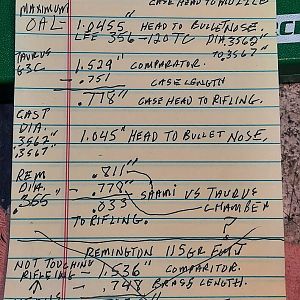 CASE HEAD TO MUZZLE
MAXIMUM
OAL 1.0455" HEAD TO BULLET NOSE.
LEE 356-120TC DIA .3562"
TO .3567"
TAURUS
G3C
1.529" COMPARATOR.
- .751 CASE LENGTH
.778" CASE HEAD TO RIFLING.
CAST
DIA.
.3562"
.3567"
1.045" HEAD TO BULLET NOSE.
REM
DIA.
.355"
.811"
- .778"
.033
SAAMI VS TAURUS
CHAMBER
TO RIFLING.
?
REMINGTON 115GR
NOT TOUCHING
RIFLEING
- 1.536" COMPARITOR.
- .748 BRASS LENGTH.